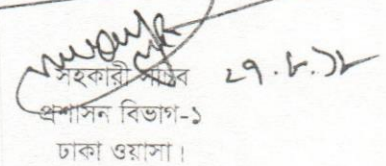 সহকারী সচিব ২৭.৮.১৮
প্রশাসন বিভাগ-১
ঢাকা ওয়াসা।